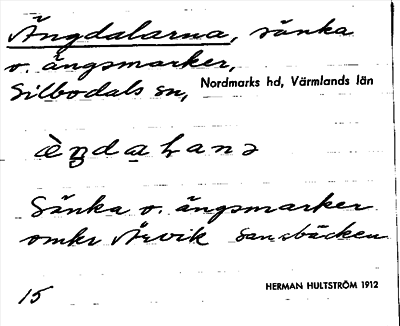 Ängdalarna, sänka
o. ängsmarker,
Silbodals sn, Nordmarks hd, Värmlands län
Sänka o. ängsmarker
omkr Årvik
15
HERMAN HULTSTRÖM 1912